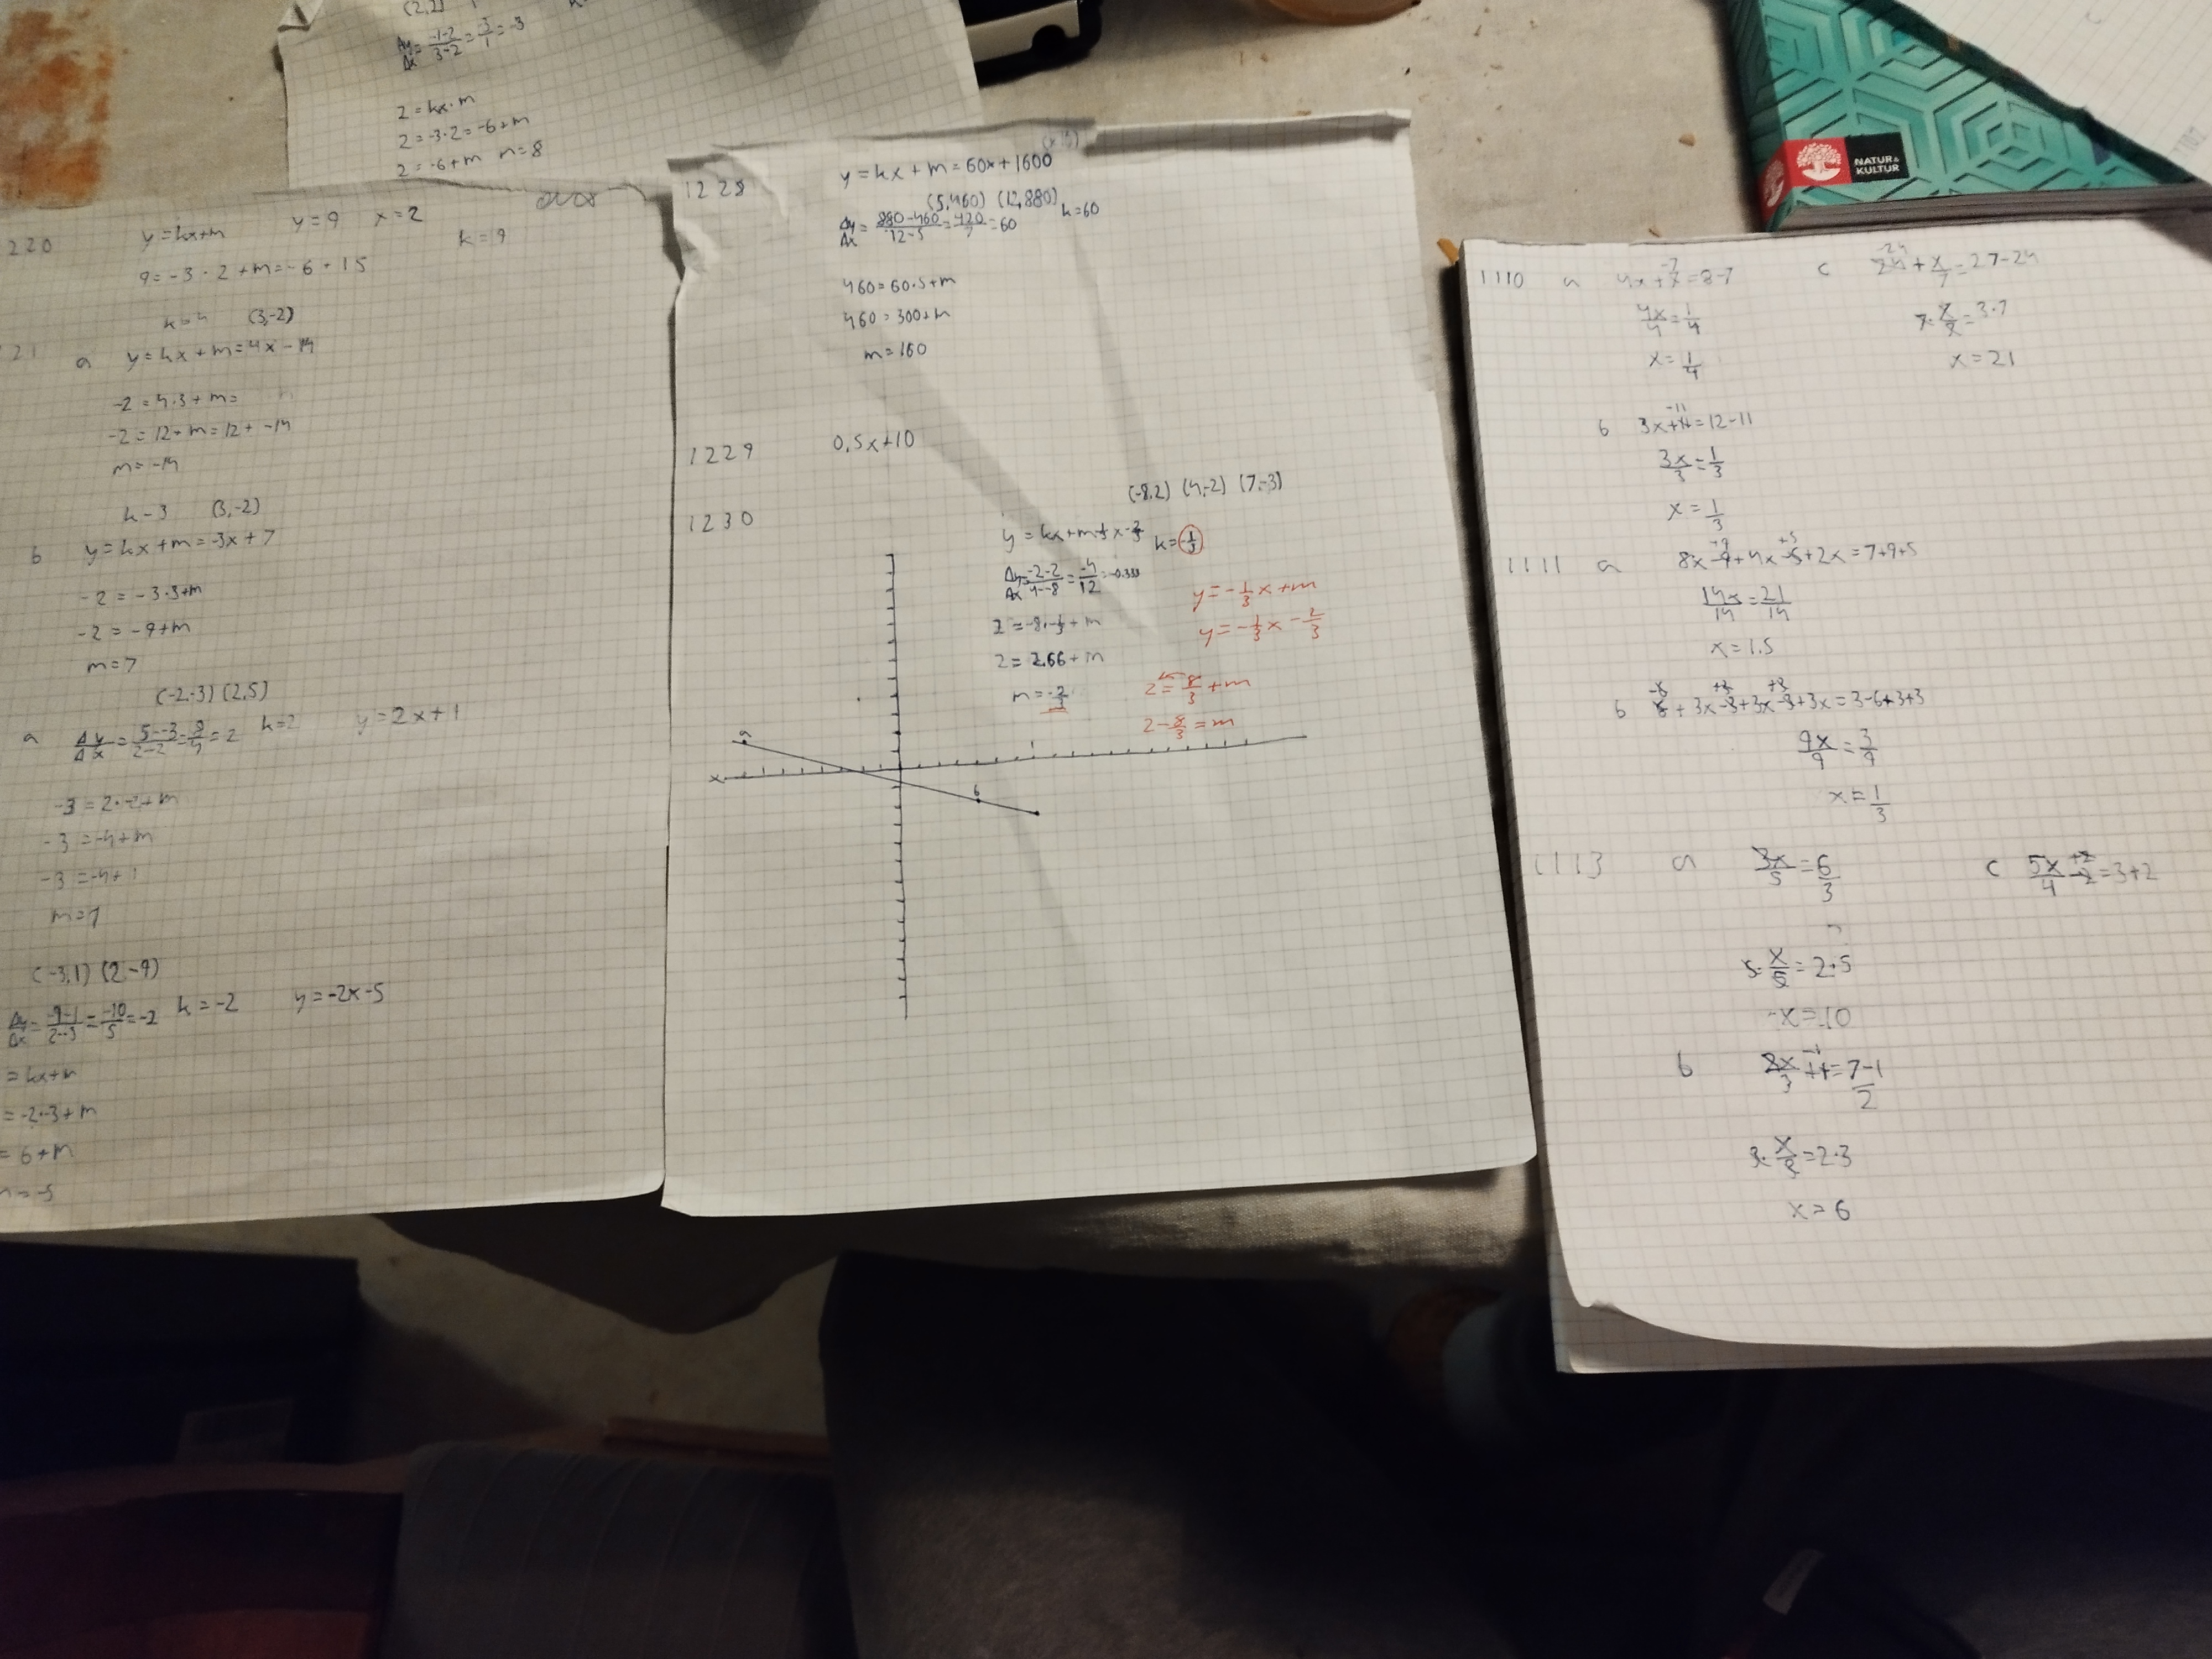 (2,2)
Δy/Δx = -1-2/3-2 = -3/1 = -3
2 = kx·m
2 = -3·2 = -6+m
2 = -6+m m=8
220
y=kx+m y=9 x=2
k=9
9=-3·2+m=-6+15
k=4 (3,-2)
21 a y=kx+m=4x-14
-2=4·3+m=
-2=12+m=12+-14
m=-14
k-3 (3,-2)
b y=kx+m=-3x+7
-2=-3·3+m
-2=-9+m
m=7
(-2,-3) (2,5)
a Δy/Δx = 5--3/2--2 = 8/4 = 2 k=2 y=2x+1
-3=2·-2+m
-3=-4+m
-3=-4+1
m=1
(-3,1) (2,-9)
Δy/Δx = -9-1/2--3 = -10/5 = -2 k=-2 y=-2x-5
=kx+m
=-2·-3+m
=6+m
m=-5
1228 y=kx+m=60x+1600
(5,460) (12,880)
Δy/Δx = 880-460/12-5 = 420/7 = 60 k=60
460=60·5+m
460=300+m
m=160
1229 0,5x+10
(-8,2) (4,-2) (7,-3)
1230
y=kx+m-1/3x-2/3 k=-1/3
Δy/Δx = -2-2/4--8 = -4/12 = -0.333
y=-1/3x+m
2=-8·-1/3+m
y=-1/3x-2/3
2=2.66+m
m=-2/3
2=8/3+m
2-8/3=m
a
x
b
1110 a 4x+7-7=8-7
4x/4=1/4
x=1/4
c 24-24+x/7=27-24
7·x/7=3·7
x=21
b 3x+11-11=12-11
3x/3=1/3
x=1/3
1111 a 8x-9+9+4x-5+5+2x=7+9+5
14x/14=21/14
x=1.5
b 6-6+3x-3+3+3x-3+3+3x=3-6+3+3
9x/9=3/9
x=1/3
1113 a 3x/5=6/3
5·x/5=2·5
x=10
b 2x/3+1-1=7-1/2
3·x/3=2·3
x=6
c 5x/4-2+2=3+2
NATUR &
KULTUR